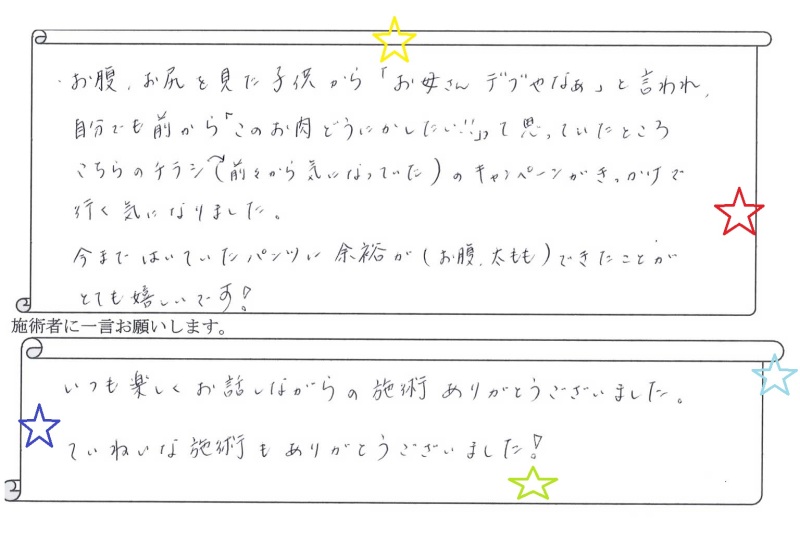 ・お腹、お尻を見た子供から「お母さん デブやなぁ」と言われ、
自分でも前から「このお肉どうにかしたい!!」って思っていたところ
こちらのチラシ(前々から気になっていた)のキャンペーンがきっかけで
行く気になりました。
今まではいていたパンツに余裕が(お腹、太もも)できたことが
とても嬉しいです!
施術者に一言お願いします。
いつも楽しくお話しながらの施術ありがとうございました。
ていねいな施術もありがとうございました!